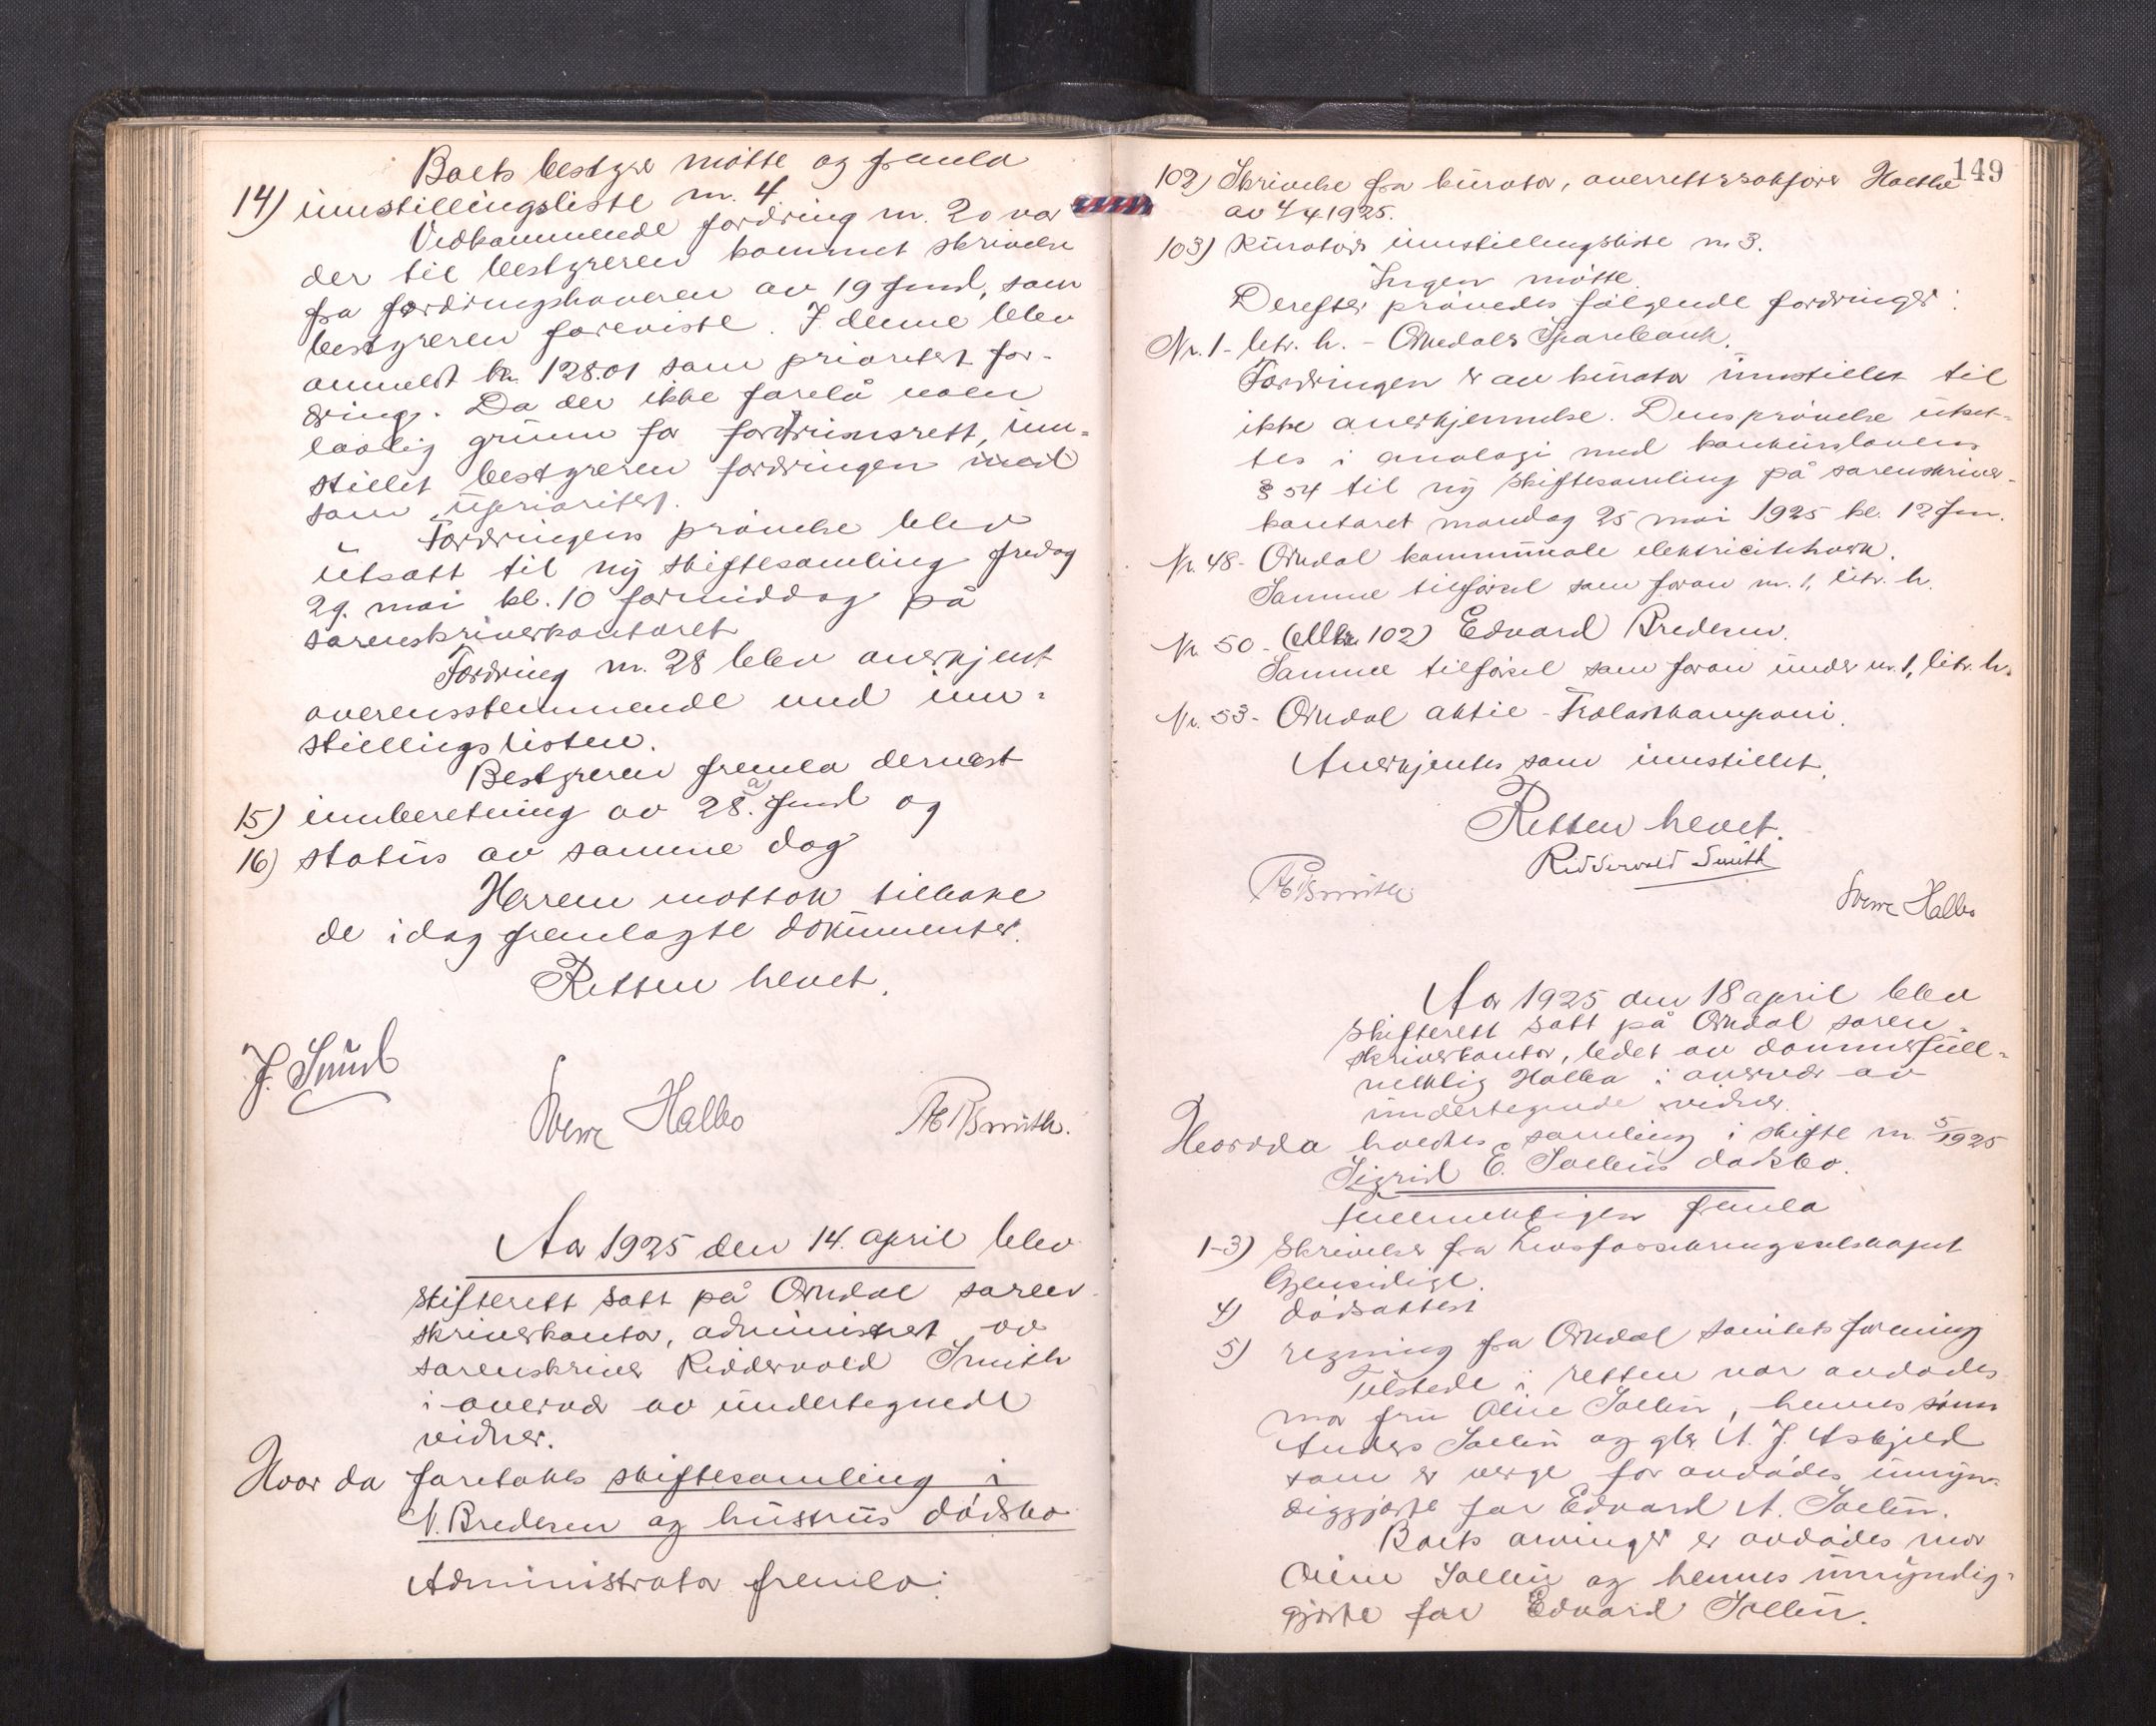 Boets bestyrer møtte og fremla
14) innstillingsliste nr. 4
Vedkommende fordring nr. 20 var
der til bestyreren kommet skrivelse
fra fordringshaveren av 19 ds md., som
bestyreren foreviste. I denne blev
anmeldt kr. 128.01 som prioritert for-
dring. Da der ikke forelå noen
lovlig grunn for fortrinsrett, inn-
stillet bestyreren fordringen med
som uprioritert.
Fordringens prøvelse blev
utsatt til ny skiftesamling fredag
29. mai kl. 10 formiddag på
sorenskriverkontoret
Fordring nr. 28 blev anerkjent
overensstemmende med inn-
stillingslisten.
Bestyreren fremla dernæst
15) innberetning av 28. f md og
16) status av samme dag
Herren mottok tilbake
de idag fremlagte dokumenter.
Retten hevet.
J. Sund
Sverre Halbo
Smith.
Aar 1925 den 14. april blev
skifterett satt på Orkdal soren-
skriverkontor, administrert av
sorenskriver Ridderwold Smith
i overvær av undertegnede
vidner.
Hvor da foretokes skiftesamling i
N. Bredesen og hustrus dødsbo
Administrator fremla:
149
102) Skrivelse fra kurator, overrettssakfører Hoethe
av 4/4 1925.
103) Kurators innstillingsliste nr 3.
Ingen møtte.
Derefter prøvedes følgende fordringer:
Nr. 1 - litr. h. - Orkedals Sparebank.
Fordringen er av kurator innstillet til
ikke anerkjennelse. Dens prøvelse utset-
tes i analogi med konkurslovens
§ 54 til ny skiftesamling på sorenskriver-
kontoret mandag 25 mai 1925 kl. 12 fm.
Nr. 48 - Orkdal kommunale elektricitetsverk.
Samme tilførsel som foran nr. 1, litr. h.
Nr. 50 - 102) Edvard Bredesen.
Samme tilførsel som foran under nr. 1, litr. h.
Nr. 53 - Orkdal Aktie-Trælastkompani.
Anerkjentes som innstillet.
Retten hevet.
Ridderwold Smith
Smith
Sverre Halbo
Aar 1925 den 18 april blev
skifterett satt på Orkdal soren-
skriverkontor, ledet av dommerfull-
mektig Halbo i overvær av
undertegnede vidner.
Hvorda holdtes samling i skifte nr. 5/1925
Sigrid E. Solliens dødsbo.
Fullmektigen fremla
1-3) Skrivelser fra Livsforsikringsselskapet
Gjensidige.
4) dødsattest
5) regning fra Orkdal sanitetsforening
Tilstede i retten var avdødes
mor fru Oline Sollien, hennes sønn
Anders Sollien og gbr. A. J. Askjell
som er verge for avdødes umyn-
diggjorte far Edvard A. Sollien.
Boets arvinger er avdødes mor
Oline Sollien og hennes umyndig-
gjorte far Edvard Sollien.